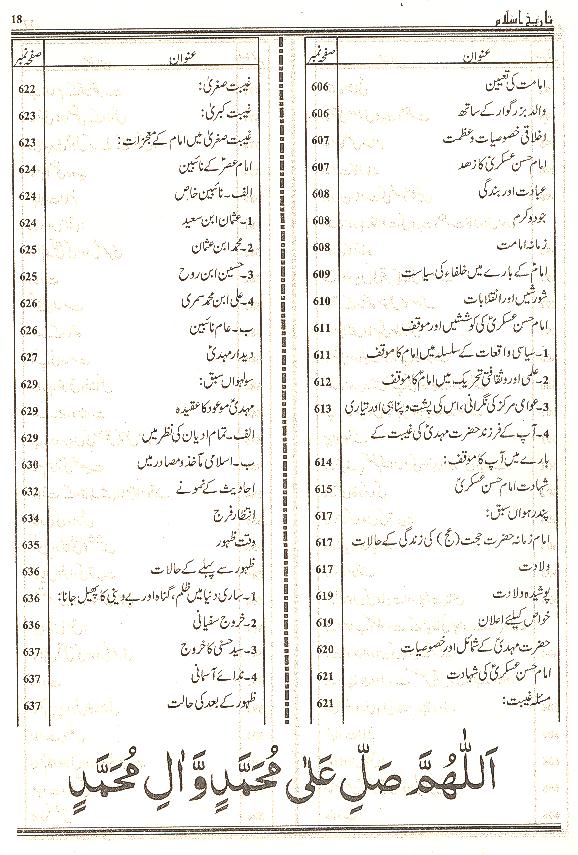 تاریخ اسلام
18
عنوان
صفحہ نمبر
امامت کی تعیین
606
والد بزرگوار کے ساتھ
606
اخلاقی خصوصیات و عظمت
607
امام حسن عسکریؑ کا زھد
607
عبادت اور بندگی
608
جود و کرم
608
زمانہ امامت
608
امامؑ کے بارے میں خلفاء کی سیاست
609
شورشیں اور انقلابات
610
امام حسن عسکریؑ کی کوششیں اور موقف
611
1۔سیاسی واقعات کے سلسلہ میں امامؑ کا موقف
611
2۔علمی اور ثقافتی تحریک میں امامؑ کا موقف
612
3۔عوامی مرکز کی نگرانی، اس کی پشت و پناہی اور تیاری
613
4۔آپ کے فرزند حضرت مہدیؑ کی غیبت کے
بارے میں آپ کا موقف:
614
شہادت امام حسن عسکریؑ
615
پندرہواں سبق:
617
امام زمانہ حضرت حجت (عج) کی زندگی کے حالات
617
ولادت
617
پوشیدہ ولادت
619
خواص کیلئے اعلان
619
حضرت مہدیؑ کے شمائل اور خصوصیات
620
امام حسن عسکریؑ کی شہادت
621
مسئلہ غیبت:
621
عنوان
صفحہ نمبر
غیبت صغریٰ:
622
غیبت کبریٰ:
623
غیبت صغریٰ میں امام کے معجزات:
623
امام عصرؑ کے نائبین
624
الف۔نائبین خاص
624
1۔عثمان ابن سعید
624
2۔محمد ابن عثمان
625
3۔حسین ابن روح
625
4۔علی ابن محمد سمری
626
ب۔عام نائبین
626
دیدار مہدیؑ
627
سولہواں سبق:
629
مہدیؑ موعود کا عقیدہ
629
الف۔تمام ادیان کی نظر میں
629
ب۔اسلامی مآخذ و مصادر میں
630
احادیث کے نمونے
632
انتظار فرج
634
وقت ظہور
635
ظہور سے پہلے کے حالات
636
1۔ساری دنیا میں ظلم، گناہ اور بے دینی کا پھیل جانا:
636
2۔خروج سفیانی
636
3۔سید حسنی کا خروج
637
4۔ندائے آسمانی
637
ظہور کے بعد کی حالت
637
اَللّٰهُمَّ صَلِّ عَلٰى مُحَمَّدٍ وَّاٰلِ مُحَمَّدٍ